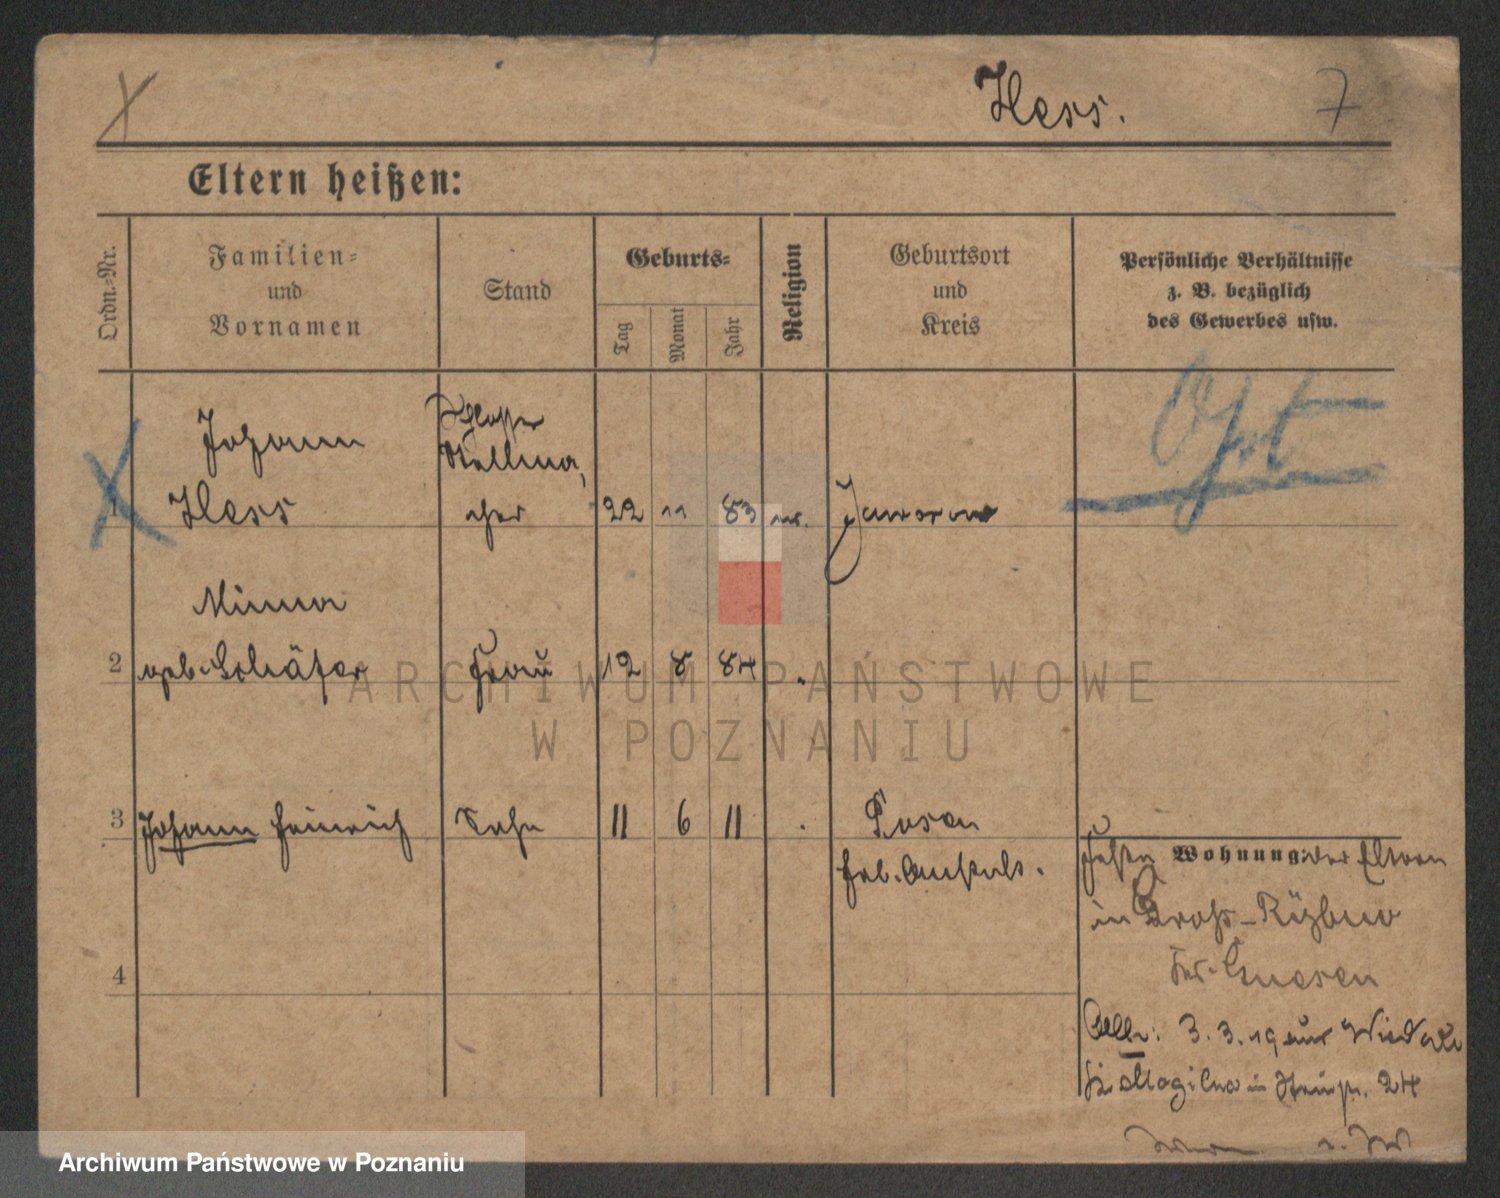 Hess.
7
Eltern heißen:
Ordn.-Nr.
Familien-
und
Vornamen
Stand
Geburts-
Tag
Monat
Jahr
Religion
Geburtsort
und
Kreis
Persönliche Verhältnisse
z. B. bezüglich
des Gewerbes usw.
Johann
Hess
Schlosser
Stellma,
cher
1
22 11 83
Janowo
2
Minna
geb. Schäfer
Frau
12 8 84
3
Johann Heinrich
Sohn
11 6 11
Posen
Heb. Anstalt.
Wohnung: der Eltern
in Gross-
Gnesen
4
3. 3. 19 aus
Mogilno in 24
ARCHIWUM PAŃSTWOWE
W POZNANIU
Archiwum Państwowe w Poznaniu